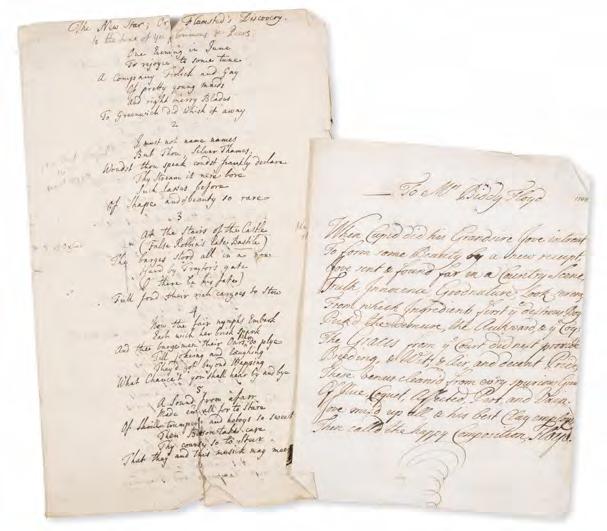 The New Star; Or Flamsted's Discovery.
To the tune of ye Commons & Peers
One Evening in June
To rejoyce to some tune
A Company Frolick and Gay
Of pretty young maids
And right merry Blades
To Greenwich did Whisk it away
2
I must not name names
But Thou, Silver Thames,
Woudst thou speak coudst frankly declare
Thy Stream it nere bore
Such Lasses before
Of Shape and beauty so rare
3
At the Stairs of the Castle
(False Robbin's late Bastile)
The barges stood all in a row
Hard by Traytors gate
(I there by his fate)
Full fond their rich cargoes to stow
4
Now the fair nymphs Embark
Each with her brisk spark
And the bargemen their Oars do plye
Full joking and laughing
They'd got beyond Wapping
What Chanc't you shall hear by and bye
5
A Sound from afarr
Made em all for to stare
Of shrill trumpets and hoboys so sweet
Then Boatswain take care
Thy course so to steer
That they and this musick may meet
To Mrs Biddy Floyd
When Cupid did his Grandsire Jove intreat
To form some Beauty by a new receipt,
Jove sent & found far in a Country Scene
Truth Innocence Goodnature Look serene
From which Ingredients first ye dextrous Boy
Pick'd the Demure, the Aukward & ye Coy
The Graces from ye Court did next provide
Breeding, & Wit, & Air, and decent Pride
These Venus cleans'd from evry spurious Grain
Of Nice, Coquet, Affected, Pert, and Vain.
Jove mix'd up all & his best Clay employd
Then called the happy Composition, Floyd.